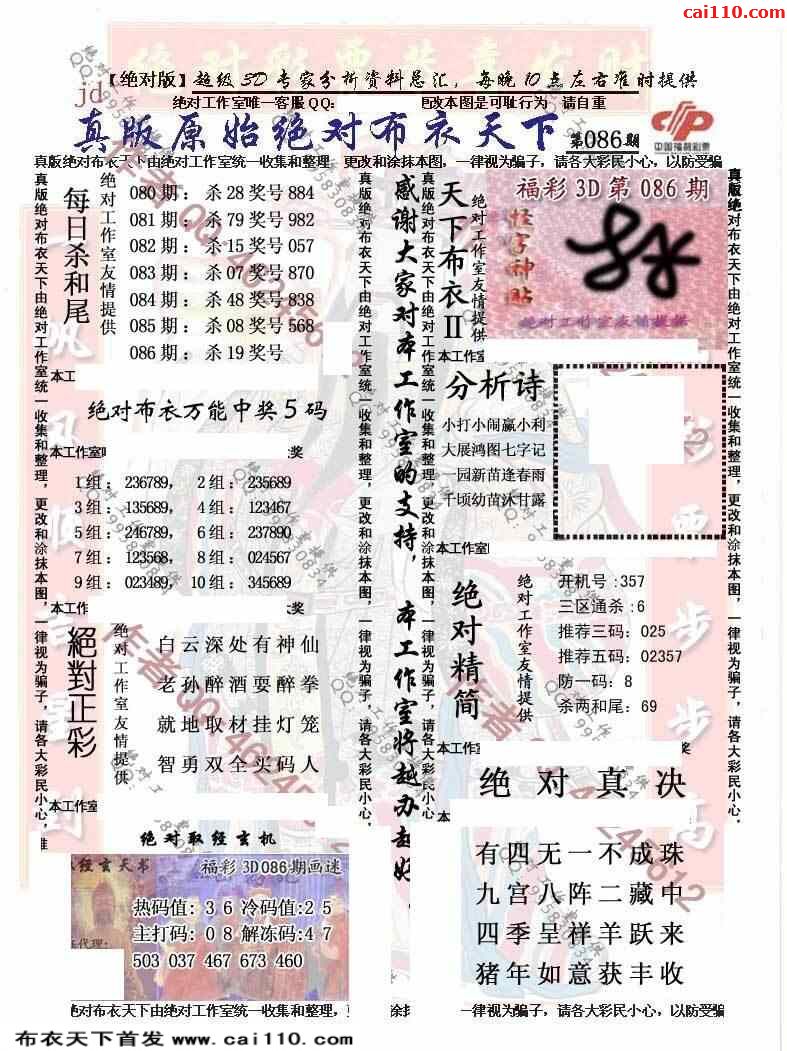 cai110.com
【绝对版】超级3D专家分析资料总汇，每晚10点左右准时提供
jd
绝对工作室唯一客服QQ:
更改本图是可耻行为 请自重
真版原始绝对布衣天下
第086期
中国福利彩票
真版绝对布衣天下由绝对工作室统一收集和整理，更改和涂抹本图，一律视为骗子，请各大彩民小心，以防受骗
真版绝对布衣天下由绝对工作室统一收集和整理，更改和涂抹本图，一律视为骗子，请各大彩民小心，
每日杀和尾
绝对工作室友情提供
080期：杀28奖号884
081期：杀79奖号982
082期：杀15奖号057
083期：杀07奖号870
084期：杀48奖号838
085期：杀08奖号568
086期：杀19奖号
本工
绝对布衣万能中奖5码
本工作室
奖
1组：236789，2组：235689
3组：135689，4组：123467
5组：246789，6组：237890
7组：123568，8组：024567
9组：023489，10组：345689
本工作
奖
絕對正彩
绝对工作室友情提供
白云深处有神仙
老孙醉酒耍醉拳
就地取材挂灯笼
智勇双全买码人
本工作室
绝对取经玄机
取经玄天书
福彩3D086期画谜
热码值:36冷码值:25
主打码:08解冻码:47
503 037 467 673 460
代理:
真版绝对布衣天下由绝对工作室统一收集和整理，更改和涂抹本图，一律视为骗子，请各大彩民小心，
感谢大家对本工作室的支持，本工作室将越办越好
真版绝对布衣天下由绝对工作室统一收集和整理，更改和涂抹本图，一律视为骗子，请各大彩民小心，
天下布衣II
绝对工作室友情提供
福彩3D第086期
怪字神贴
绝对工作室友情提供
本工作室
分析诗
小打小闹赢小利
大展鸿图七字记
一园新苗逢春雨
千顷幼苗沐甘露
本工作室
绝对精简
绝对工作室友情提供
开机号:357
三区通杀:6
推荐三码:025
推荐五码:02357
防一码:8
杀两和尾:69
本工作
奖
绝对真决
本
有四无一不成珠
九宫八阵二藏中
四季呈祥羊跃来
猪年如意获丰收
真版绝对布衣天下由绝对工作室统一收集和整理，更改和涂抹本图，一律视为骗子，请各大彩民小心，
绝对布衣天下由绝对工作室统一收集和整理，
涂
一律视为骗子，请各大彩民小心，以防受骗
布衣天下首发 www.cai110.com